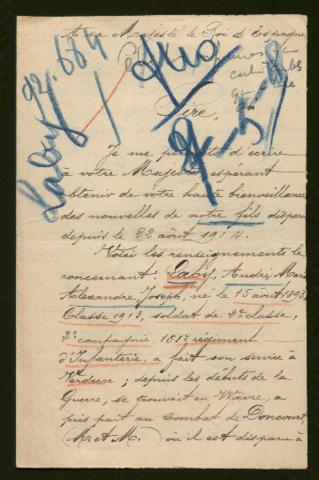 A sa Majesté le Roi d'Espagne
Laby 92.684
Sire,
Je me permets d'écrire
à votre Majesté espérant
obtenir de votre haute bienveillance
des nouvelles de notre fils disparu
depuis le 22 août 1914.
Voici les renseignements le
concernant: Laby, André, Marie
Alexandre, Joseph, né le 15 avril 1893
Classe 1913, soldat de 2e classe,
2e compagnie 151e régiment
d'Infanterie, a fait son service à
Verdun; depuis les débuts de la
Guerre, se trouvait en Wœvre, a
pris part au Combat de Doncourt,
(M. et M.) où il est disparu à